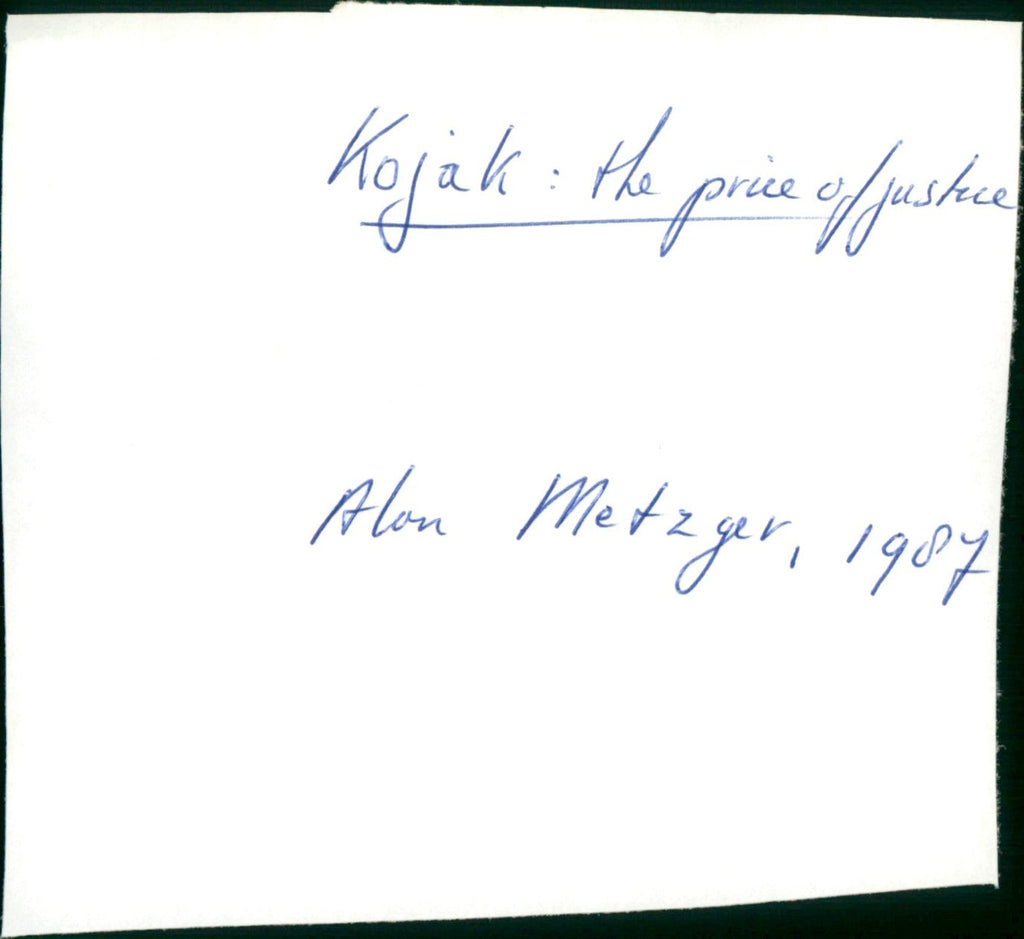 Kojak : the price of justice
Alan Metzger, 1987